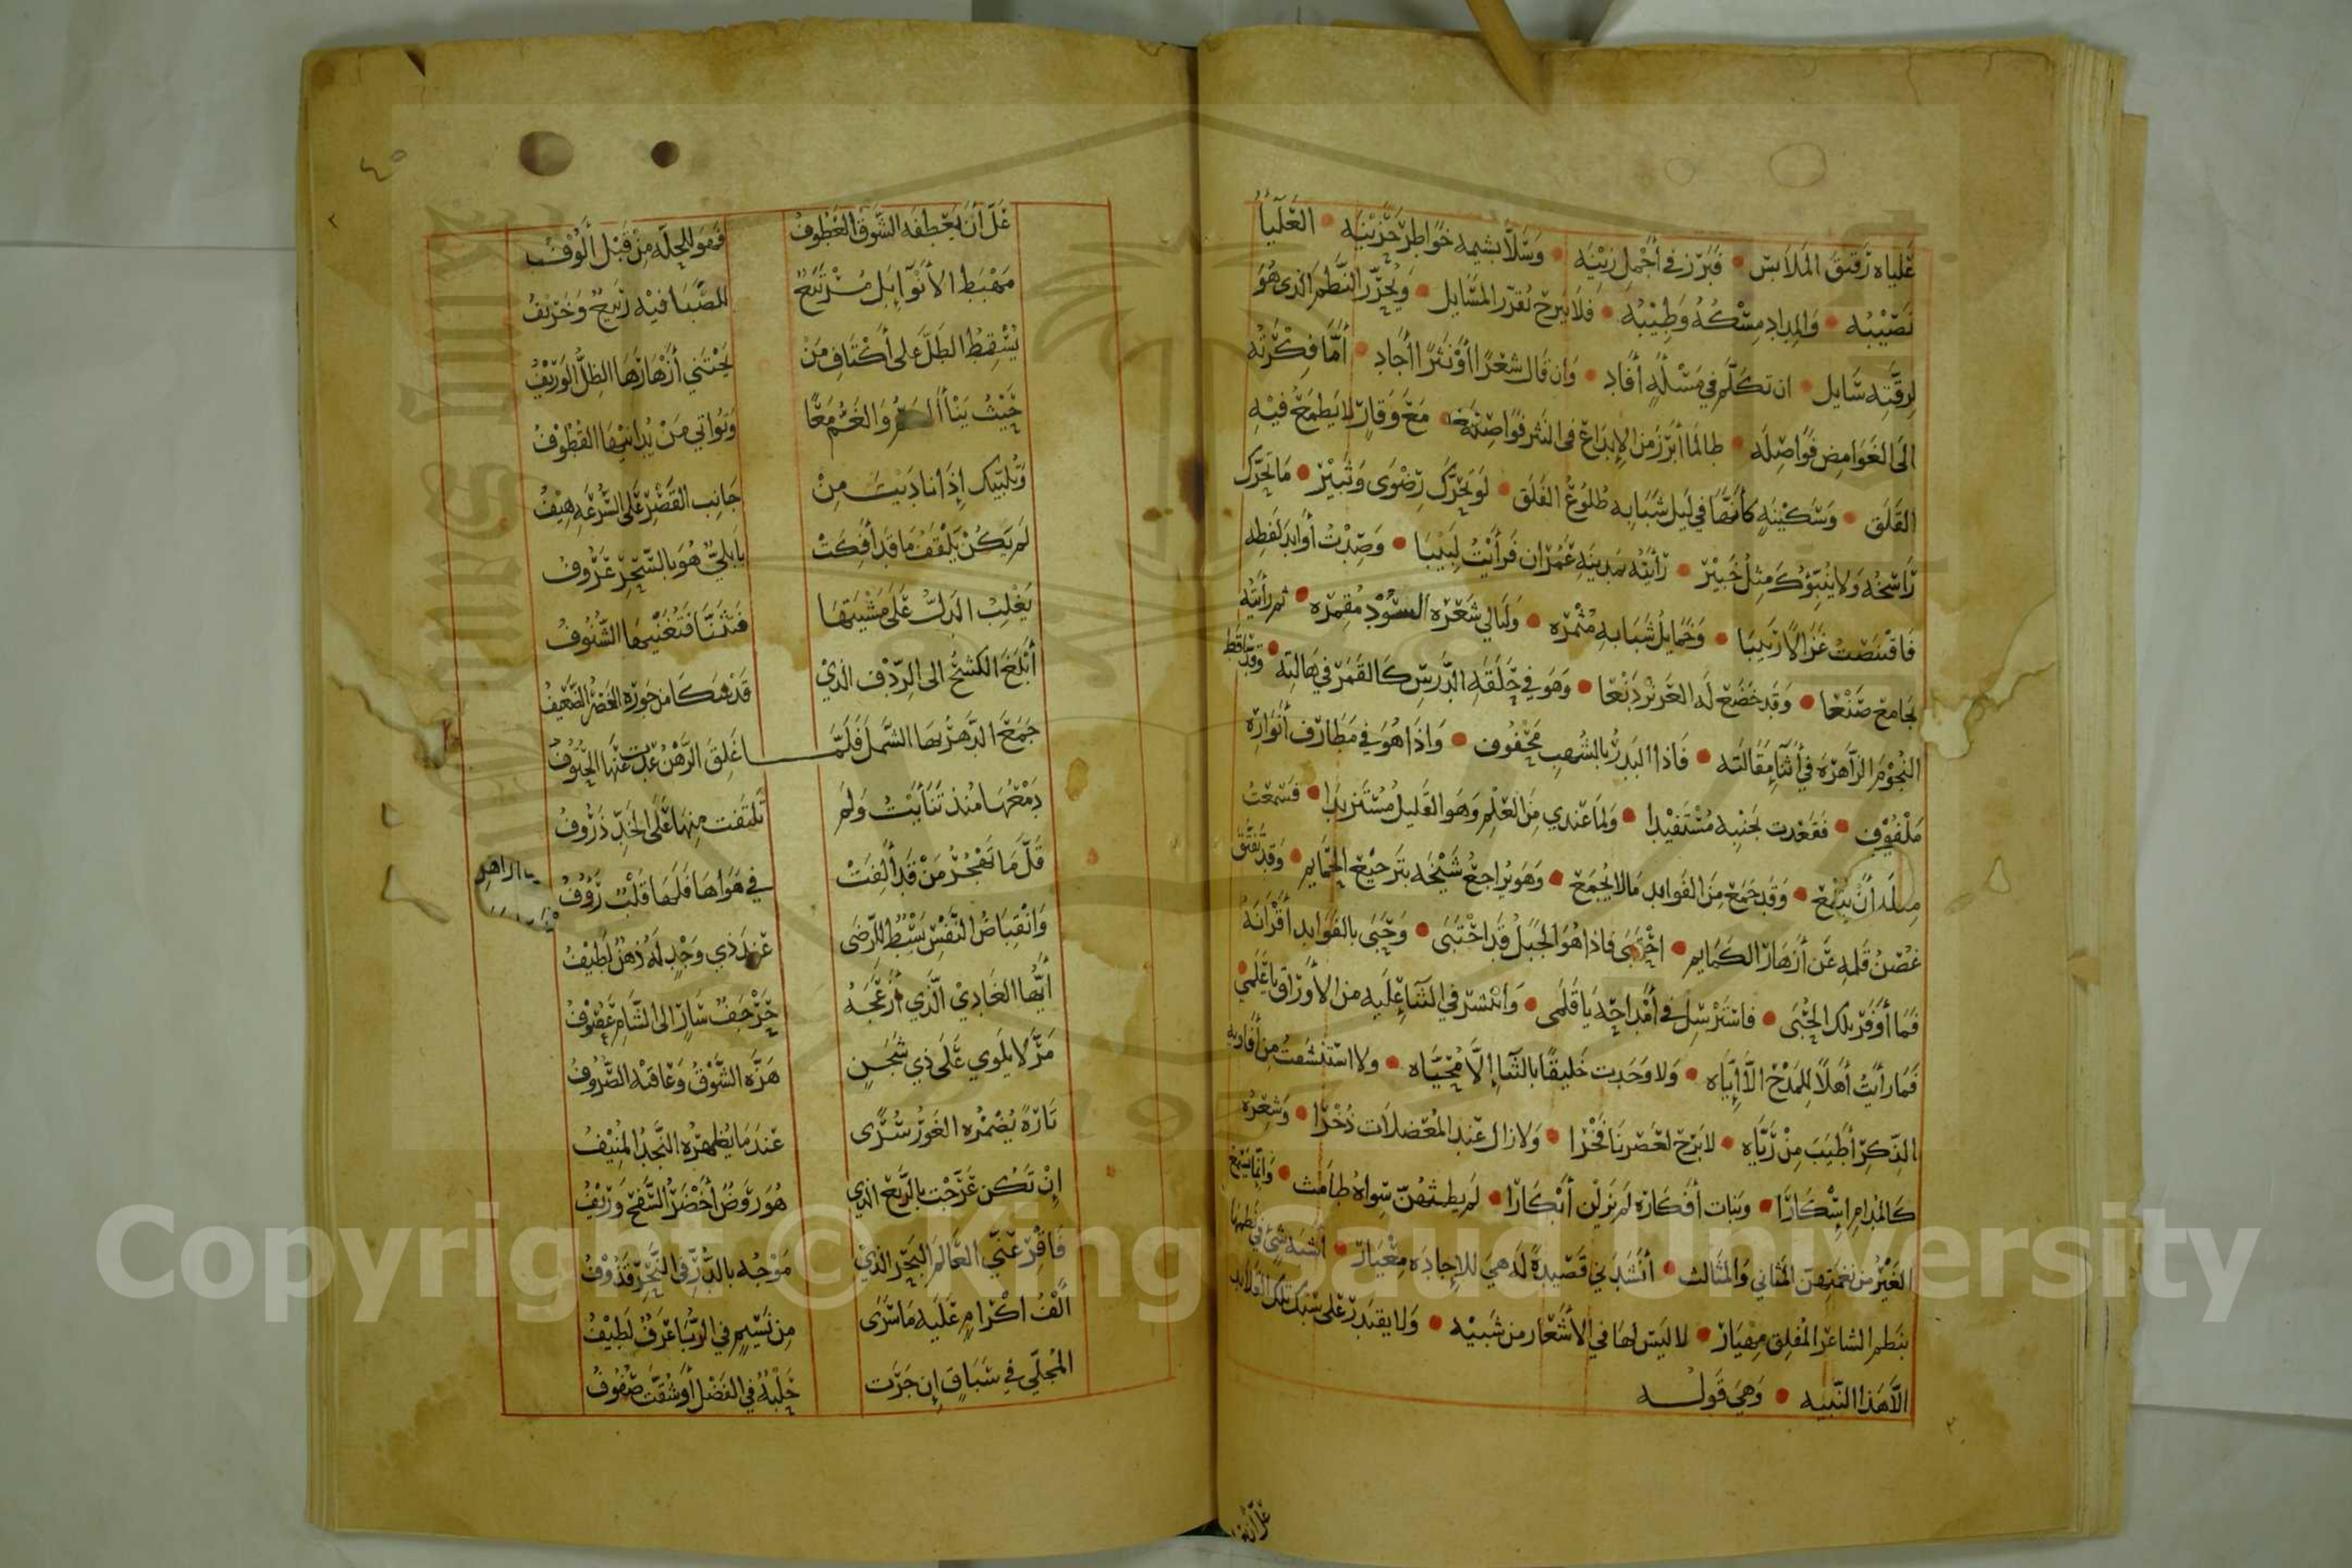 علياه رقيق الملابس • فبرز في أجمل زينه • وسلا بشيمه خواطر حزينه • العليا
نصيبه • والمداد مسكه وطيبه • فلا يبرح يقرر المسايل • ويحرر النظم الذي هو
لرقته سايل • ان تكلم في مسئلة أفاد • وان قال شعرا أو نثرا أجاد • أما فكرته
الى الغوامض فواصله • طالما أبرز من الإبداع في النثر فواصله • مع وقار لا يطمع فيه
القلق • وسكينة كأنها في ليل شبابه طلوع الفلق • لو تحرك رضوى وثبير • ما تحرك
راسخه ولا ينبؤك مثل خبير • رأيته بمدينة عمران فرأيت لبيبا • وصدت أوابد لفظه
فاقتنصت غزالا ربيبا • وخمايل شبابه مثمره • وليالي شعره السود مقمره • ثم رأيته
بجامع صنعا • وقد خضع له الغر نزر دنعا • وهو في حلقة الدرس كالقمر في هالته • وقد لقط
النجوم الزاهره في أثنا مقالته • فاذا البدر بالشهب محفوف • واذا هو في مطارف أنواره
ملفوف • فقعدت بجنبه مستفيدا • ولما عندي من العلم وهو القليل مستزيدا • فسمعت
أن • وقد جمع من الفوايد مالا يجمع • وهو يراجع شيخه بترجيع الحمايم • وقد تفتق
غصن قلمه عن أزهار الكمايم • احتبى فاذا هو الجبل قد احتبى • وحبى بالفوايد أقرانه
فما أوفر بلك الحبى • فاسترسل في أمداحه يا قلمى • وانتشر في الثنا عليه من الأوراق يا علمي
فما رأيت أهلا للمدح الا أياه • ولا وجدت خليقا بالثنا إلا محياه • ولا استنشقت من أفاويه
الذكر أطيب من رياه • لا برح لعصرنا فخرا • ولا زال عند المعضلات ذخرا • وشعره
كالمدام إسكارا • وبنات أفكاره لم يزلن أبكارا • لم يطمثهن سواه طامث • وانما
الغير من نغمتهن المثاني والمثالث • أنشدني قصيدة له هي للاجاده معيار • أشبه شئ في نظمها
بنظم الشاعر المفلق مهيار • لا ليس لها في الأشعار من شبيه • ولا يقدر على سبك تلك القلايد
الا هذا النبيه • وهي قوله
عل أن
عل أن يعطفه الشوق العطوف فهو للجله من قبل ألوف
مهبط الأنوآ بل مرتبع للصبا فيه ربيع وخريف
يسقط الطل على أكتاف من يجتني أزهارها الظل الوريف
حيث ينأ والغم معا وتواتي من يدانيها القطوف
وتلبيك إذا ناديت من جانب القصر على السرعه هيف
لم يكن يلقف ما قد أفكت بابلي هو بالسحر عروف
يغلب الدل على مشيتها فتثنا فتغنيها الشنوف
أبلغ الكشح الى الردف الذي قد شكا من جوره الخصر الضعيف
جمع الدهر بها الشمل فلمـــا غلق الرهن عدت عنها الحتوف
دمعها منذ تنأيت ولم تلتفت منها على الخد ذروف
قل ما تهجر من قد ألفت في هواها فلها قلب رؤوف
وانقباض النفس بسط للرضى عند ذي وجد له ذهن لطيف
أيها الغادي الذي أزعجه حرجف سار الى الشام عصوف
مر لا يلوي على ذي شجن هزه الشوق وعاقته الصروف
تارة يضمره الغور سرى عند ما يظهره النجد المنيف
إن تكن عرجت بالربع الذي هو روض أخضر السفح وريف
فاقر عني العالم البحر الذي موجه بالدر في النحر قذوف
ألف اكرام عليه ما سرى من نسيم في الربا عرف لطيف
المجلي في سباق إن جرت حلبة في الفضل أو شقت صفوف